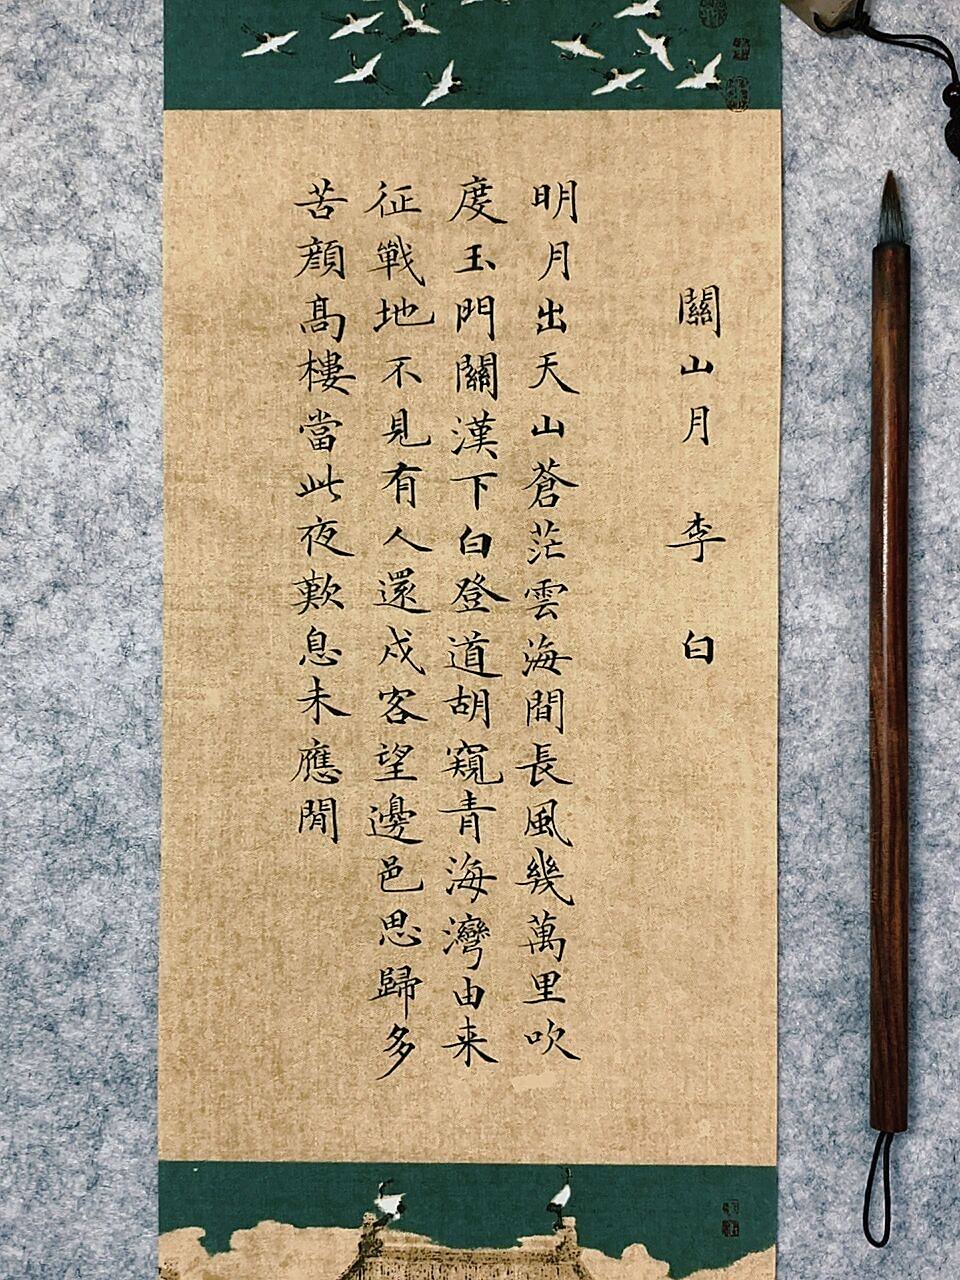 關山月 李白
明月出天山蒼茫雲海間長風幾萬里吹
度玉門關漢下白登道胡窺青海灣由来
征戰地不見有人還戍客望邊邑思歸多
苦顔高樓當此夜歎息未應閒